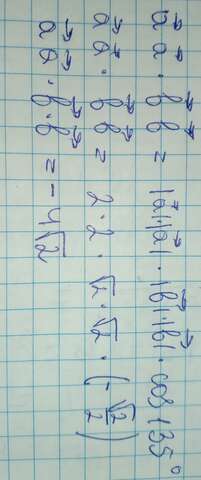 a⃗ a⃗ · b⃗ b⃗ = |a⃗|·|a⃗| · |b⃗|·|b⃗| · cos 135°
a⃗ a⃗ · b⃗ b⃗ = 2 · 2 · √2 · √2 · (-√2/2)
a⃗ a⃗ · b⃗ · b⃗ = - 4√2